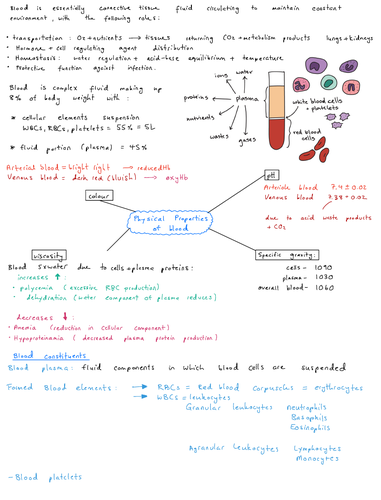 Blood is essentially connective tissue fluid circulating to maintain constant
environment, with the following roles:
• transportation: O2+nutrients → tissues returning CO2+metabolism products lungs+kidneys
• Hormone + cell regulating agent distribution
• Homeostasis: water regulation + acid-base equilibrium + temperature
• Protective function against infection.
Blood is complex fluid making up
8% of body weight with:
* cellular elements suspension
WBCs, RBCs, platelets = 55% = 5L
* fluid portion (plasma) = 45%
ions
water
proteins
plasma
nutrients
wastes
gases
white blood cells
+ platelets
red blood
cells
Arterial blood = bright light → reducedHb
Venous blood = dark red (bluish) → oxyHb
colour
pH
Arteriole blood 7.4 ± 0.02
Venous blood 7.38 + 0.02
due to acid waste products
+ CO2
Physical Properties
of blood
viscosity
Blood 5xwater due to cells+plasma proteins:
increases ↑:
• polycremia (excessive RBC production)
• dehydration (water component of plasma reduces)
Decreases ↓:
• Anemia (reduction in cellular component)
• Hypoproteinamia (decreased plasma protein production)
Specific gravity:
cells - 1090
plasma - 1030
overall blood - 1060
Blood constituents
Blood plasma: fluid components in which blood cells are suspended
Formed Blood elements: → RBCs = Red blood corpuscles = erythrocytes
→ WBCs = leukocytes
Granular leukocytes neutrophils
Basophils
Eosinophils
Agranular Leukocytes Lymphocytes
Monocytes
- Blood platelets